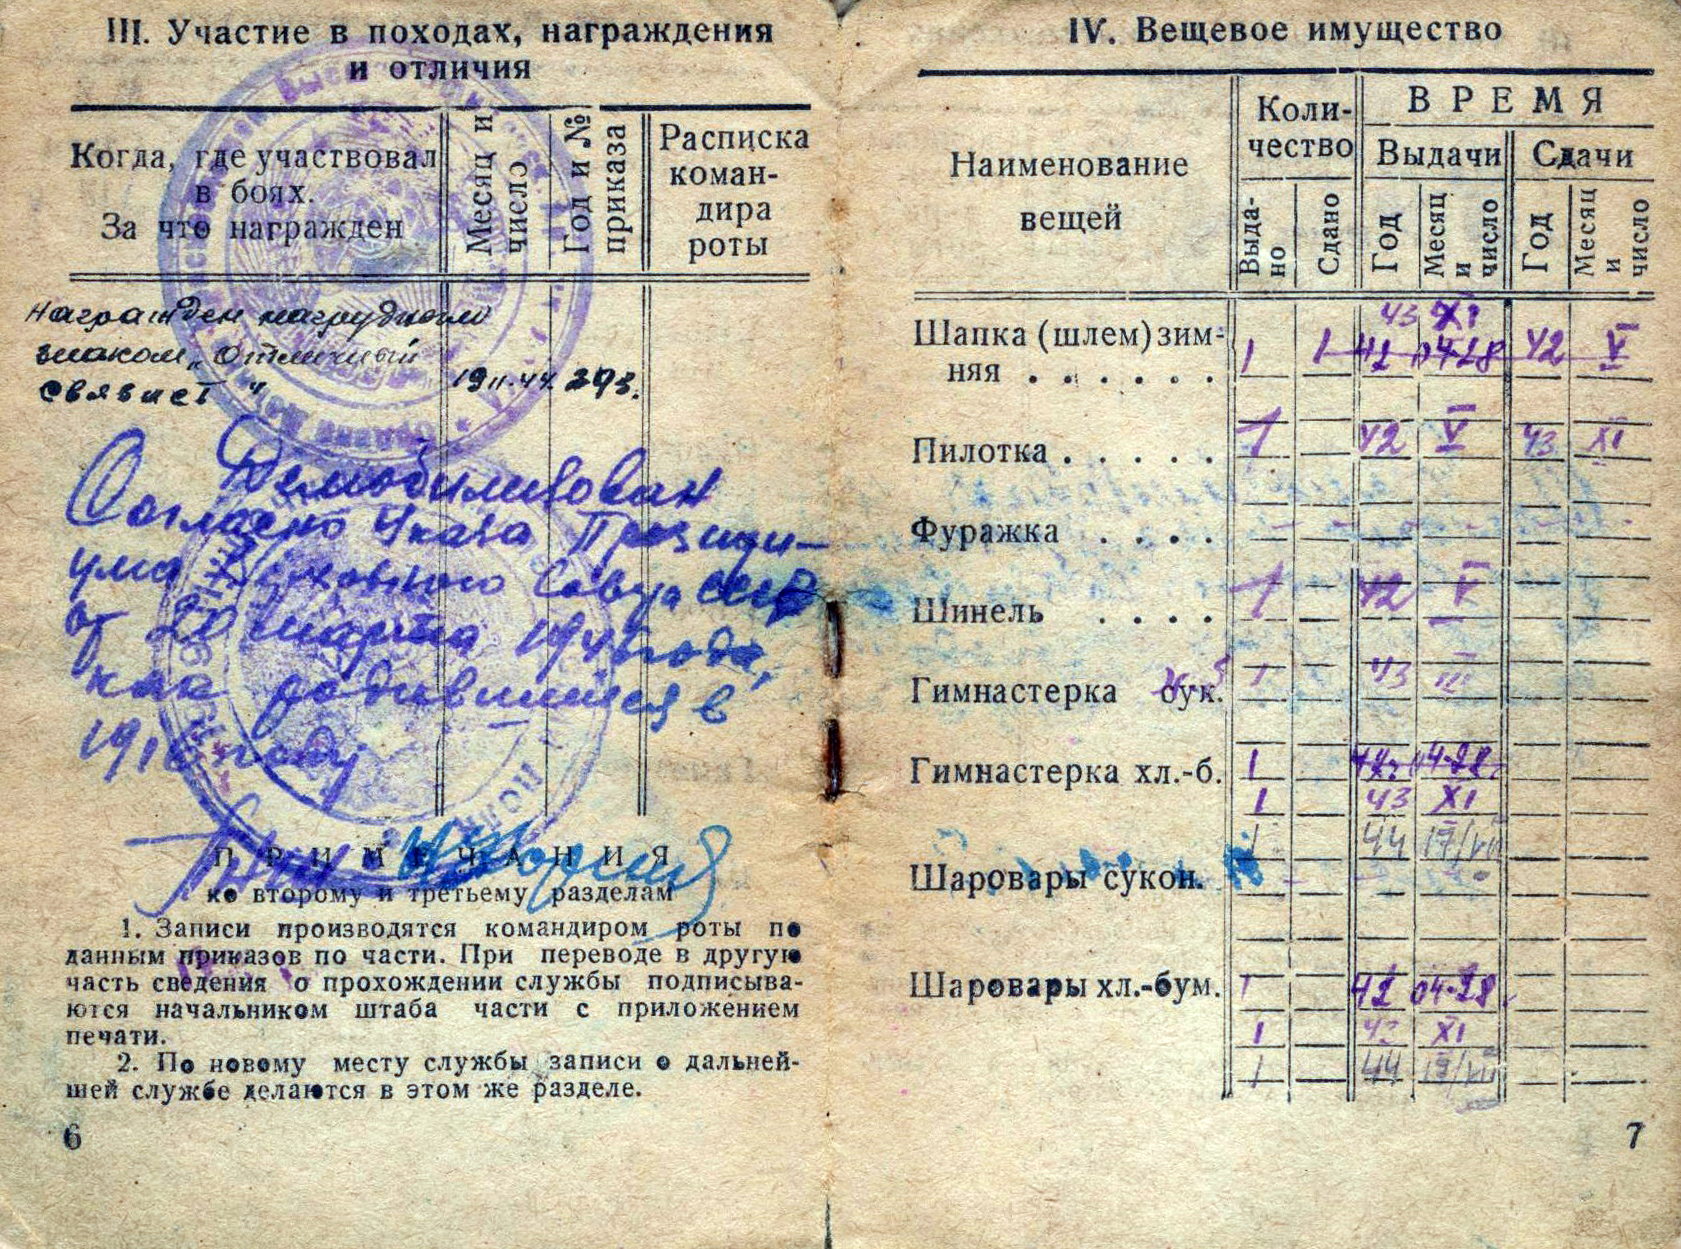 III. Участие в походах, награждения
и отличия
Когда, где участвовал
в боях.
За что награжден
Месяц и
число
Год и №
приказа
Расписка
коман-
дира
роты
Награжден нагрудным
знаком „Отличный
связист" 19 II.44 293.
Демобилизован
Согласно Указа Президи-
ума Верховного Совета СССР
от 20 марта 194 года,
как родившийся в
1916 году
ПРИМЕЧАНИЯ
ко второму и третьему разделам
1. Записи производятся командиром роты по
данным приказов по части. При переводе в другую
часть сведения о прохождении службы подписыва-
ются начальником штаба части с приложением
печати.
2. По новому месту службы записи о дальней-
шей службе делаются в этом же разделе.
6
IV. Вещевое имущество
Наименование
вещей
Коли-
чество
ВРЕМЯ
Выдачи
Сдачи
Выда-
но
Сдано
Год
Месяц
и
число
Год
Месяц
и
число
43 XI
Шапка (шлем) зим- 1 1 42 04-28 42 V
няя . . . . . .
Пилотка . . . . . 1 42 V 43 XI
Фуражка . . . .
Шинель . . . . 1 42 V
Гимнастерка сук. 1 43 III
Гимнастерка хл.-б. 1 42 04-28
1 43 XI
1 44 17/VII
Шаровары сукон.
Шаровары хл.-бум. 1 42 04-28
1 43 XI
1 44 17/VII
7